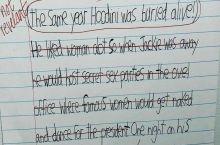 not
relevant
The same year Hoodni was buried alive!!)
He liked woman alot so when Jackie was away
he would host secret sex parties in the ovel
office where famous women would get naked
and dance for the president One night on his